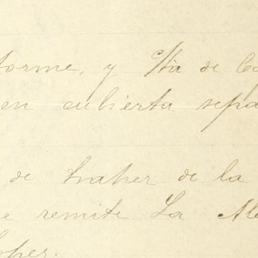 forme, y
en cubierta sepa
de traher de la
e remite La Ale